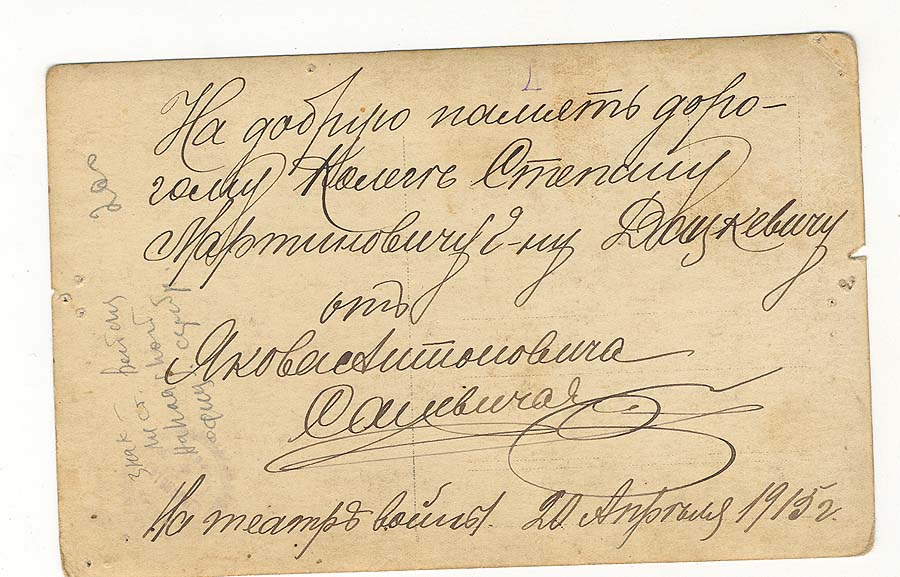 На добрую память доро-
гому Коллегѣ Степану
Мартиновичу г-ну Дацкевичу
отъ
Якова Антоновича
На театрѣ войны. 20 Апрѣля 1915 г.
знак